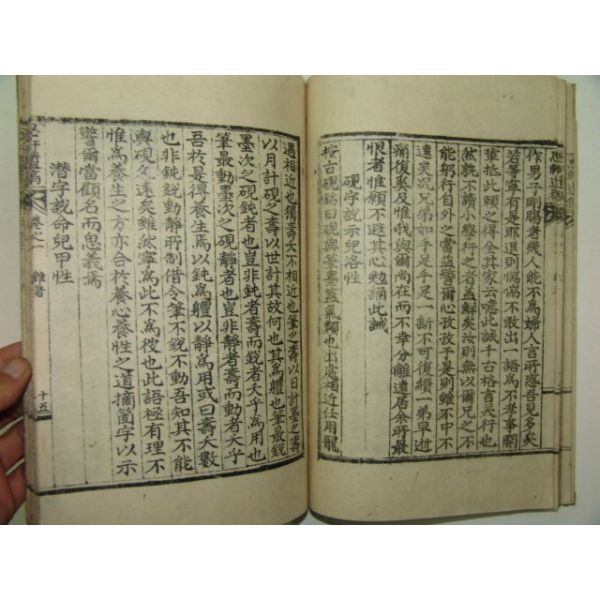 作男子剛腸者幾人能不爲婦人言所惑吾見多矣
若等寧有是耶退則惴惴不敢出一語爲不孝事開
輩抵此賴之得全其家云噫此誡千古格言矣行也
不讀小學行之者盖鮮矣汝則無以爾兄之不
能躬行自外之當益警爾心孜孜于是則雖不中不
遠矣况兄弟如手足手足一断不可復續一弟早逝
痛復矣及惟我與爾尚在而不幸分離遠居余所最
恨者惟願不遐其心勉此誡
硯字說示兒洛性
按古硯銘曰硯與筆墨盖氣類也出處相近任用寵
遇相近也獨壽夭不相近也筆之壽以日計墨之壽
以月計硯之壽以世計其故何也其爲體也筆最銳
墨次之硯鈍者也豈非鈍者壽而銳者夭乎其爲用也
筆最動墨次之硯靜者也豈非靜者壽而動者夭乎
吾於是得養生焉以鈍爲體以靜爲用或曰壽夭數
也非鈍銳動靜所制借令筆不銳不動吾知其不能
與硯久遠矣雖然寧爲此不爲彼也此語極有理不
惟爲養生之方亦合於養心養性之道摘箇字以示
警爾當顧名而思義焉
潜字說命兒甲性
卷之一 雜著 十五